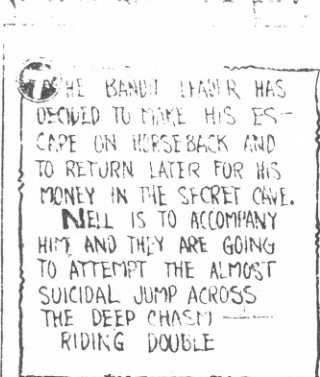 THE BANDIT LEADER HAS
DECIDED TO MAKE HIS ES-
CAPE ON HORSEBACK AND
TO RETURN LATER FOR HIS
MONEY IN THE SECRET CAVE.
NELL IS TO ACCOMPANY
HIM, AND THEY ARE GOING
TO ATTEMPT THE ALMOST
SUICIDAL JUMP ACROSS
THE DEEP CHASM —
RIDING DOUBLE